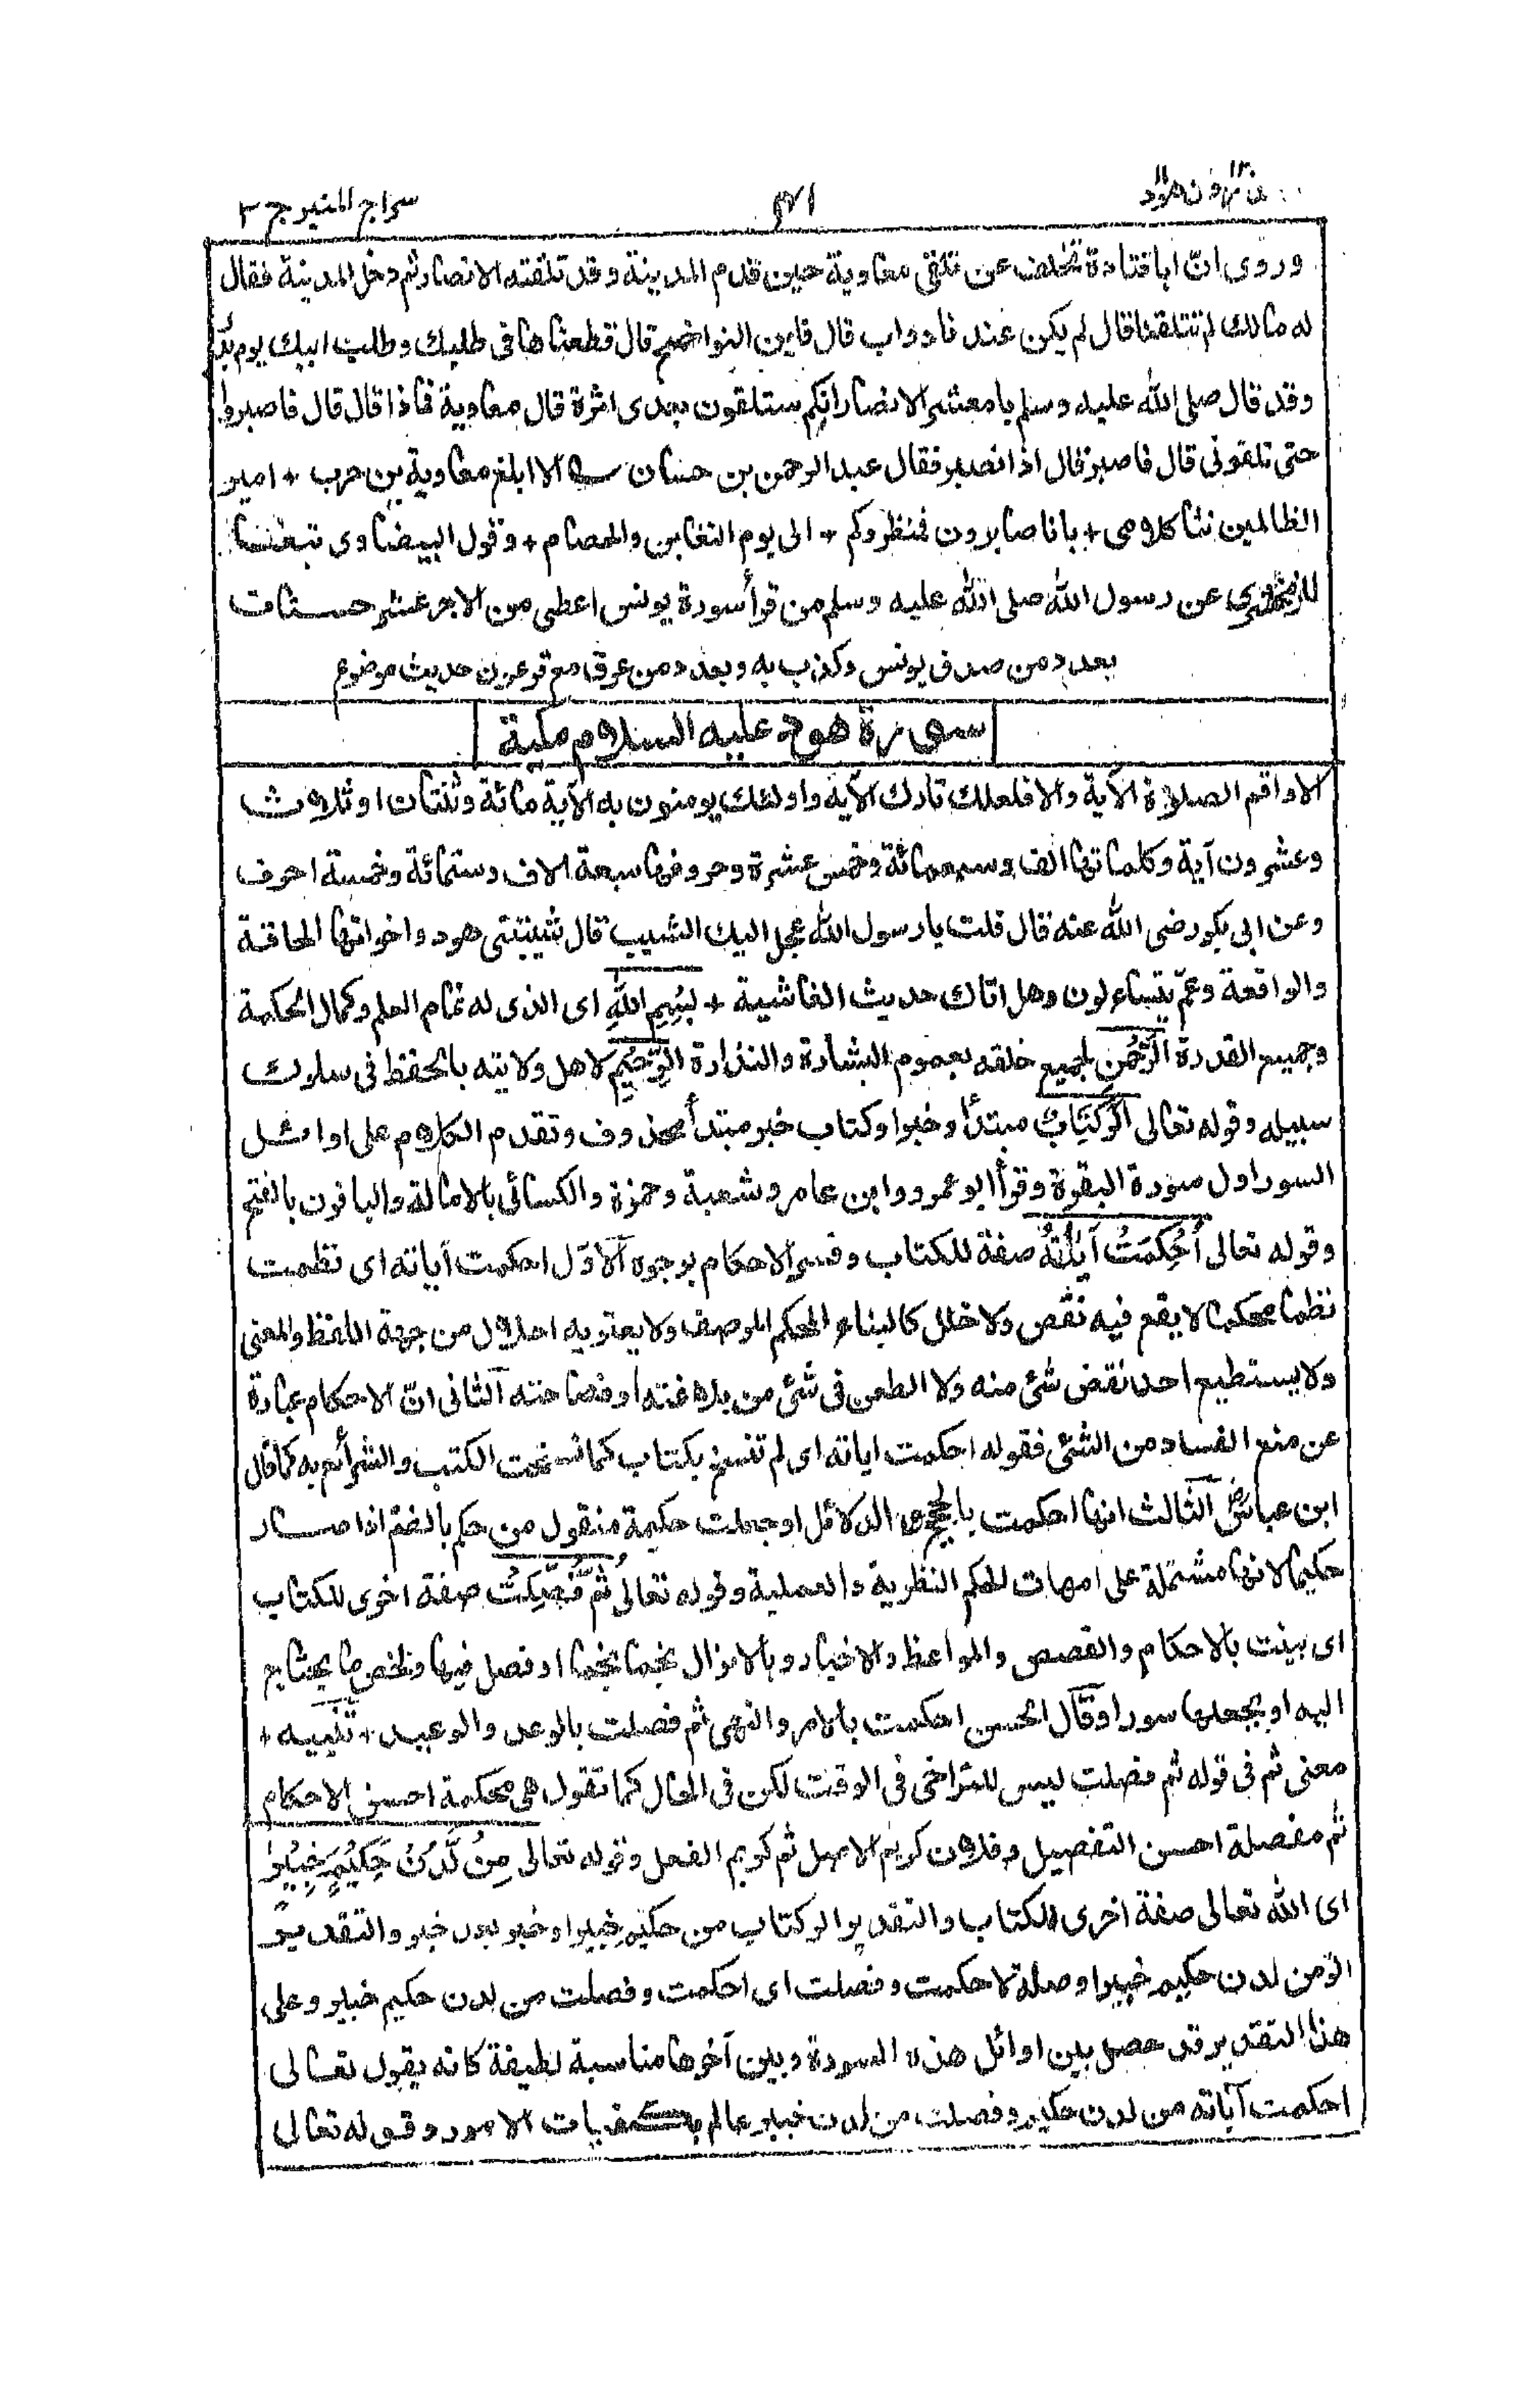 سراج المنير ج ٢
وروى انّ ابا قتادة تخلف عن تلقى معاوية حين قدم المدينة وقد تلقته الانصار ثم دخل المدينة فقال
له مالك لم تتلقنا قال لم يكن عندنا دواب قال فاين النواضح قال قطعناها فى طلبك وطلب ابيك يوم بدر
وقد قال صلى الله عليه وسلم يا معشر الانصار انكم ستلقون بعدى اثرة قال معاوية فماذا قال قال فاصبروا
حتى تلقونى قال فاصبر قال اذا نصبر فقال عبد الرحمن بن حسان الا ابلغ معاوية بن حرب + امير
الظالمين نثا كلامى + بانا صابرون فمنظروكم + الى يوم التغابن والخصام + وقول البيضاوى تبعا
للزمخشرى عن رسول الله صلى الله عليه وسلم من قرأ سورة يونس اعطى من الاجر عشر حسنات
بعدد من صدق يونس وكذب به وبعدد من غرق مع فرعون حديث موضوع
سورة هود عليه السلام مكية
الا واقم الصلاة الآية والا فلعلك تارك الآية واولئك يومنون به الآية مائة وثنتان او ثلاث
وعشرون آية وكلماتها الف وسبعمائة وخمس عشرة وحروفها سبعة الاف وستمائة وخمسة احرف
وعن ابى بكر رضى الله عنه قال قلت يا رسول الله عجل اليك الشيب قال شيبتنى هود واخواتها الحاقة
والواقعة وعمّ يتساءلون وهل اتاك حديث الغاشية + بِسْمِ اللهِ اى الذى له تمام العلم وكمال الحكمة
وجميع القدرة الرَّحْمٰنِ لجميع خلقه بعموم البشارة والنذارة الرَّحِيْمِ لاهل ولايته بالحفظ فى سلوك
سبيله وقوله تعالى الٓرٰ كِتَابٌ مبتدأ وخبر او كتاب خبر مبتدأ محذوف وتقدم الكلام على اوائل
السور اول سورة البقرة وقرأ ابو عمرو وابن عامر وشعبة وحمزة والكسائى بالامالة والباقون بالفتح
وقوله تعالى اُحْكِمَتْ آيٰتُهٗ صفة للكتاب وفسر الاحكام بوجوه الاوّل احكمت آياته اى نظمت
نظما محكما لا يقع فيه نقص ولا خلل كالبناء المحكم المرصف ولا يعتريه اخلال من جهة اللفظ والمعنى
ولا يستطيع احد نقض شئ منه ولا الطعن فى شئ من بلاغته او فصاحته الثانى انّ الاحكام عبارة
عن منع الفساد من الشئ فقوله احكمت اياته اى لم تنسخ بكتاب كما نسخت الكتب والشرائع به كما قال
ابن عباس الثالث انها احكمت بالحجج والدلائل او جعلت حكيمة منقول من حكم بالضم اذا صار
حكيما لانها مشتملة على امهات الحكم النظرية والعملية وقوله تعالى ثُمَّ فُصِّلَتْ صفة اخرى للكتاب
اى بينت بالاحكام والقصص والمواعظ والاخبار وبالانزال نجما نجما او فصل فيها ولخص ما يحتاج
اليه او بجعلها سورا وقال الحسن احكمت بالامر والنهى ثم فصلت بالوعد والوعيد + تنبيه +
معنى ثم فى قوله ثم فصلت ليس للتراخى فى الوقت لكن فى الحال كما تقول هى محكمة احسن الاحكام
ثم مفصلة احسن التفصيل وفلان كريم الاصل ثم كريم الفعل وقوله تعالى مِنْ لَّدُنْ حَكِيْمٍ خَبِيْرٍ
اى الله تعالى صفة اخرى للكتاب والتقدير الر كتاب من حكيم خبير او خبر بعد خبر والتقدير
الر من لدن حكيم خبير او صلة لاحكمت وفصلت اى احكمت وفصلت من لدن حكيم خبير وعلى
هذا التقدير قد حصل بين اوائل هذه السورة وبين آخرها مناسبة لطيفة كانه يقول تعالى
احكمت آياته من لدن حكيم وفصلت من لدن خبير عالم بكيفيات الامور وقوله تعالى